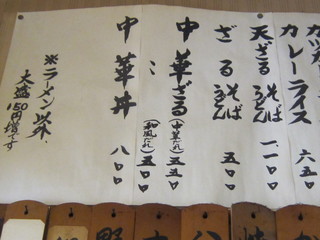 カレーライス 六五〇
天ざる そば うどん 一一〇〇
ざる そば うどん 五〇〇
中華ざる (中華だれ) 五五〇
〃 (和風だれ) 五五〇
中華丼 八〇〇
※ラーメン以外、
大盛150円増です